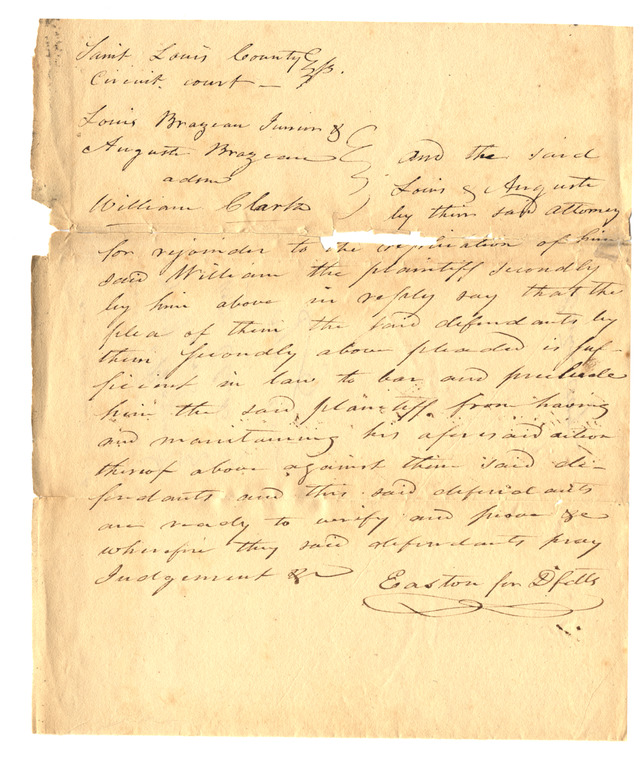 Saint Louis County } ss.
Circuit court —
Louis Brazeau Junior &
Auguste Brazeau
adsm
William Clark
and the said
Louis & Auguste
by their said attorney
for rejoinder to the replication of him
said William the plaintiff secondly
by him above in reply say that the
plea of them the said defendants by
them secondly above pleaded is suf-
ficient in law to bar and preclude
him the said plaintiff from having
and maintaining his aforesaid action
thereof above against them said de-
fendants and this said defendants
are ready to verify and prove &c
wherefore they said defendants pray
Judgement &c
Easton for Dfetts